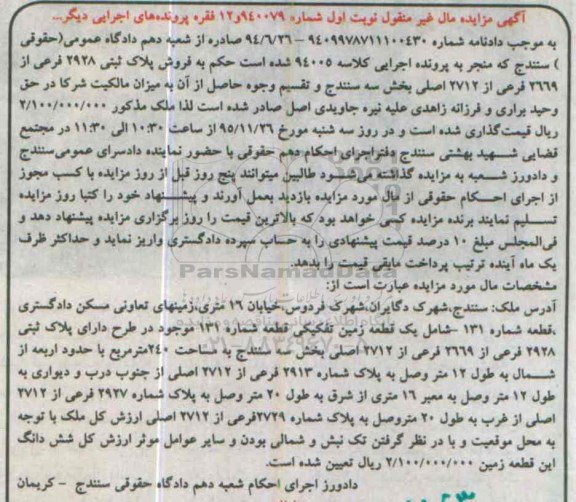 آگهی مزایده مال غیر منقول نوبت اول شماره ۹۴۰۰۷۹و۱۲ فقره پرونده‌های اجرایی دیگر...
به موجب دادنامه شماره ۹۴۰۹۹۷۸۷۱۱۱۰۰۴۳۰ – ۹۴/۶/۲۶ صادره از شعبه دهم دادگاه عمومی(حقوقی
) سنندج که منجر به پرونده اجرایی کلاسه ۹۴۰۰۵ شده است حکم به فروش پلاک ثبتی ۲۹۲۸ فرعی از
۲۶۶۹ فرعی از ۲۷۱۲ اصلی بخش سه سنندج و تقسیم وجوه حاصل از آن به میزان مالکیت شرکا در حق
وحید براری و فرزانه زاهدی علیه نیره جاویدی اصل صادر شده است لذا ملک مذکور ۲/۱۰۰/۰۰۰/۰۰۰
ریال قیمت‌گذاری شده است و در روز سه شنبه مورخ ۹۵/۱۱/۲۶ از ساعت ۱۰:۳۰ الی ۱۱:۳۰ در مجتمع
قضایی شهید بهشتی سنندج دفتراجرای احکام دهم حقوقی با حضور نماینده دادسرای عمومی سنندج
و دادورز شعبه به مزایده گذاشته می‌شود طالبین میتوانند پنج روز قبل از روز مزایده با کسب مجوز
از اجرای احکام حقوقی از مال مورد مزایده بازدید بعمل آورند و پیشنهاد خود را کتبا روز مزایده
تسلیم نمایند برنده مزایده کسی خواهد بود که بالاترین قیمت را روز برگزاری مزایده پیشنهاد دهد و
فی‌المجلس مبلغ ۱۰ درصد قیمت پیشنهادی را به حساب سپرده دادگستری واریز نماید و حداکثر ظرف
یک ماه آینده ترتیب پرداخت مابقی قیمت را بدهد.
ParsNamadData
مشخصات مال مورد مزایده عبارت است از:
آدرس ملک: سنندج،شهرک دگایران،شهرک فردوس،خیابان ۱۶ متری،زمینهای تعاونی مسکن دادگستری
،قطعه شماره ۱۳۱ –شامل یک قطعه زمین تفکیکی قطعه شماره ۱۳۱ موجود در طرح دارای پلاک ثبتی
۲۹۲۸ فرعی از ۲۶۶۹ فرعی از ۲۷۱۲ اصلی بخش سه سنندج به مساحت ۲۴۰مترمربع با حدود اربعه از
شمال به طول ۱۲ متر وصل به پلاک شماره ۲۹۱۳ فرعی از ۲۷۱۲ اصلی از جنوب درب و دیواری به
طول ۱۲ متر وصل به معبر ۱۶ متری از شرق به طول ۲۰ متر وصل به پلاک شماره ۲۹۲۷ فرعی از ۲۷۱۲
اصلی از غرب به طول ۲۰ متروصل به پلاک شماره ۲۷۲۹فرعی از ۲۷۱۲ اصلی ارزش کل ملک با توجه
به محل موقعیت و با در نظر گرفتن تک نبش و شمالی بودن و سایر عوامل موثر ارزش کل شش دانگ
این قطعه زمین ۲/۱۰۰/۰۰۰/۰۰۰ ریال تعیین شده است.
دادورز اجرای احکام شعبه دهم دادگاه حقوقی سنندج – کریمان